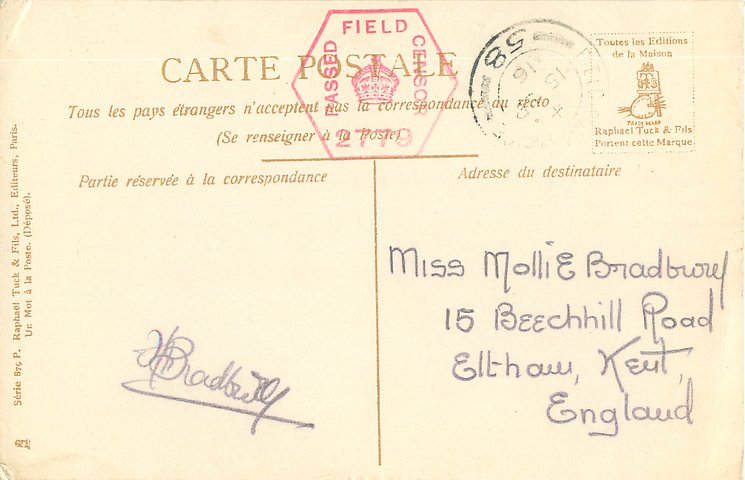 CARTE POSTALE
Tous les pays étrangers n'acceptent pas la correspondance au recto
(Se renseigner à la Poste)
PASSED FIELD CENSOR
2779
58
15
16
Toutes les Editions
de la Maison
TRADE MARK
Raphael Tuck & Fils
Portent cette Marque
Partie réservée à la correspondance
Adresse du destinataire
Miss Mollie Bradbury
15 Beechhill Road
Eltham, Kent,
England
Bradbury
Série 875 P. Raphael Tuck & Fils, Ltd., Editeurs, Paris.
Un Mot à la Poste. (Déposé).